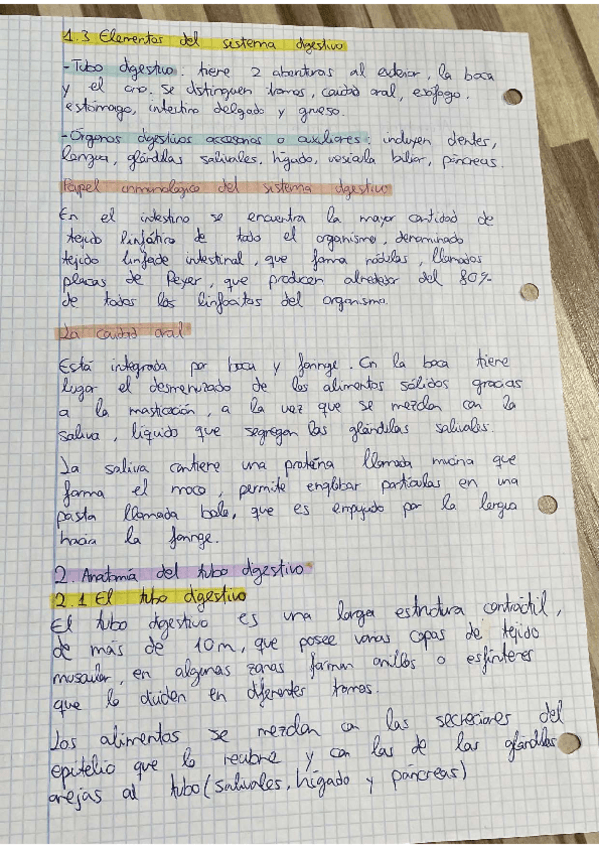 1.3 Elementos del sistema digestivo
-Tubo digestivo: tiene 2 aberturas al exterior, la boca
y el ano. Se distinguen tramos, cavidad oral, esófago,
estómago, intestino delgado y grueso.
-Órganos digestivos accesorios o auxiliares: incluyen dientes,
lengua, glándulas salivales, hígado, vesícula biliar, páncreas.
Papel inmunológico del sistema digestivo
En el intestino se encuentra la mayor cantidad de
tejido linfático de todo el organismo, denominado
tejido linfoide intestinal, que forma nódulos, llamados
placas de Peyer, que producen alrededor del 80%
de todos los linfocitos del organismo.
La cavidad oral
Está integrada por boca y faringe. En la boca tiene
lugar el desmenuzado de los alimentos sólidos gracias
a la masticación, a la vez que se mezclan con la
saliva, líquido que segregan las glándulas salivales.
La saliva contiene una proteína llamada mucina que
forma el moco, permite englobar partículas en una
pasta llamada bolo, que es empujado por la lengua
hacia la faringe.
2. Anatomía del tubo digestivo
2.1 El tubo digestivo
El tubo digestivo es una larga estructura contráctil,
de más de 10m, que posee varias capas de tejido
muscular, en algunas zonas forman anillos o esfínteres
que lo dividen en diferentes tramos.
Los alimentos se mezclan con las secreciones del
epitelio que lo recubre y con las de las glándulas
anejas al tubo (salivales, hígado y páncreas)